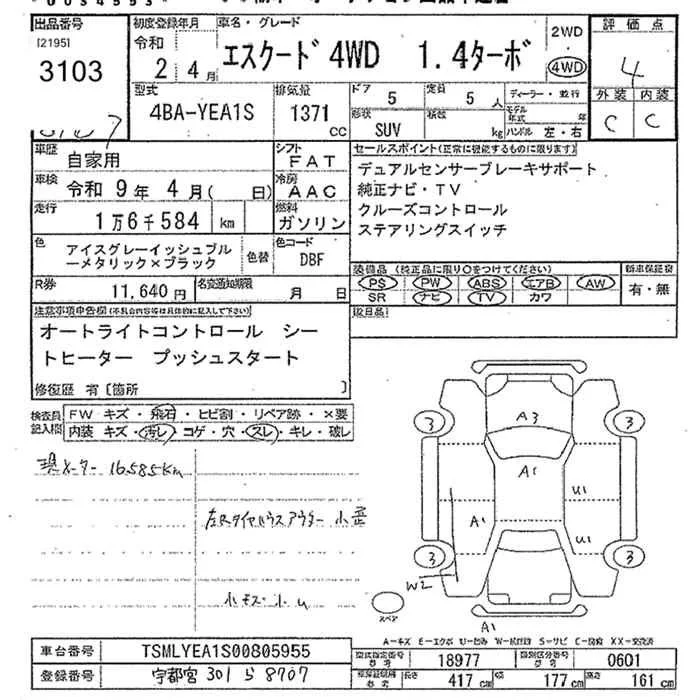 出品番号
[2195]
3103
初度登録年月
令和
2 4月
車名・グレード
エスクード 4WD 1.4ターボ
2WD
4WD
評価点
4
外装 内装
C C
型式
4BA-YEA1S
排気量
1371
CC
ドア 5
定員 5人
形状 SUV
積数 kg
ディーラー・並行
モデル年式 年
ハンドル 左・右
車歴 自家用
シフト FAT
車検 令和 9年 4月( 日)
冷房 AAC
走行 1万6千584 km
燃料 ガソリン
色 アイスグレーイッシュブルーメタリック×ブラック
色替
色コード DBF
R券 11,640円
名変通知期限 月 日
セールスポイント(正常に機能するものに限ります)
デュアルセンサーブレーキサポート
純正ナビ・TV
クルーズコントロール
ステアリングスイッチ
装備品(純正品に限り○をつけてください)
PS PW ABS エアB AW
SR ナビ TV カワ
新車保証書
有・無
取扱品
注意事項申告欄(不具合内容等は具体的に記入して下さい)
オートライトコントロール シートヒーター プッシュスタート
修復歴 有〔箇所 〕
検査員記入欄
FW キズ・飛石・ヒビ割・リペア跡・×要
内装 キズ・汚レ・コゲ・穴・スレ・キレ・破レ
現メーター 16585Km
左Rタイヤハウスアウター 小歪
A3
A1
A1
U1
U1
W2
A1
3
3
3
3
スペア
A-キズ E-エクボ U-凹み W-波状跡 S-サビ C-腐蝕 XX-交換済
車台番号 TSMLYEA1S00805955
登録番号 宇都宮 301 ら 8707
型式指定番号 参考 18977
類別区分番号 参考 0601
長さ 417cm 幅 177cm 高さ 161cm